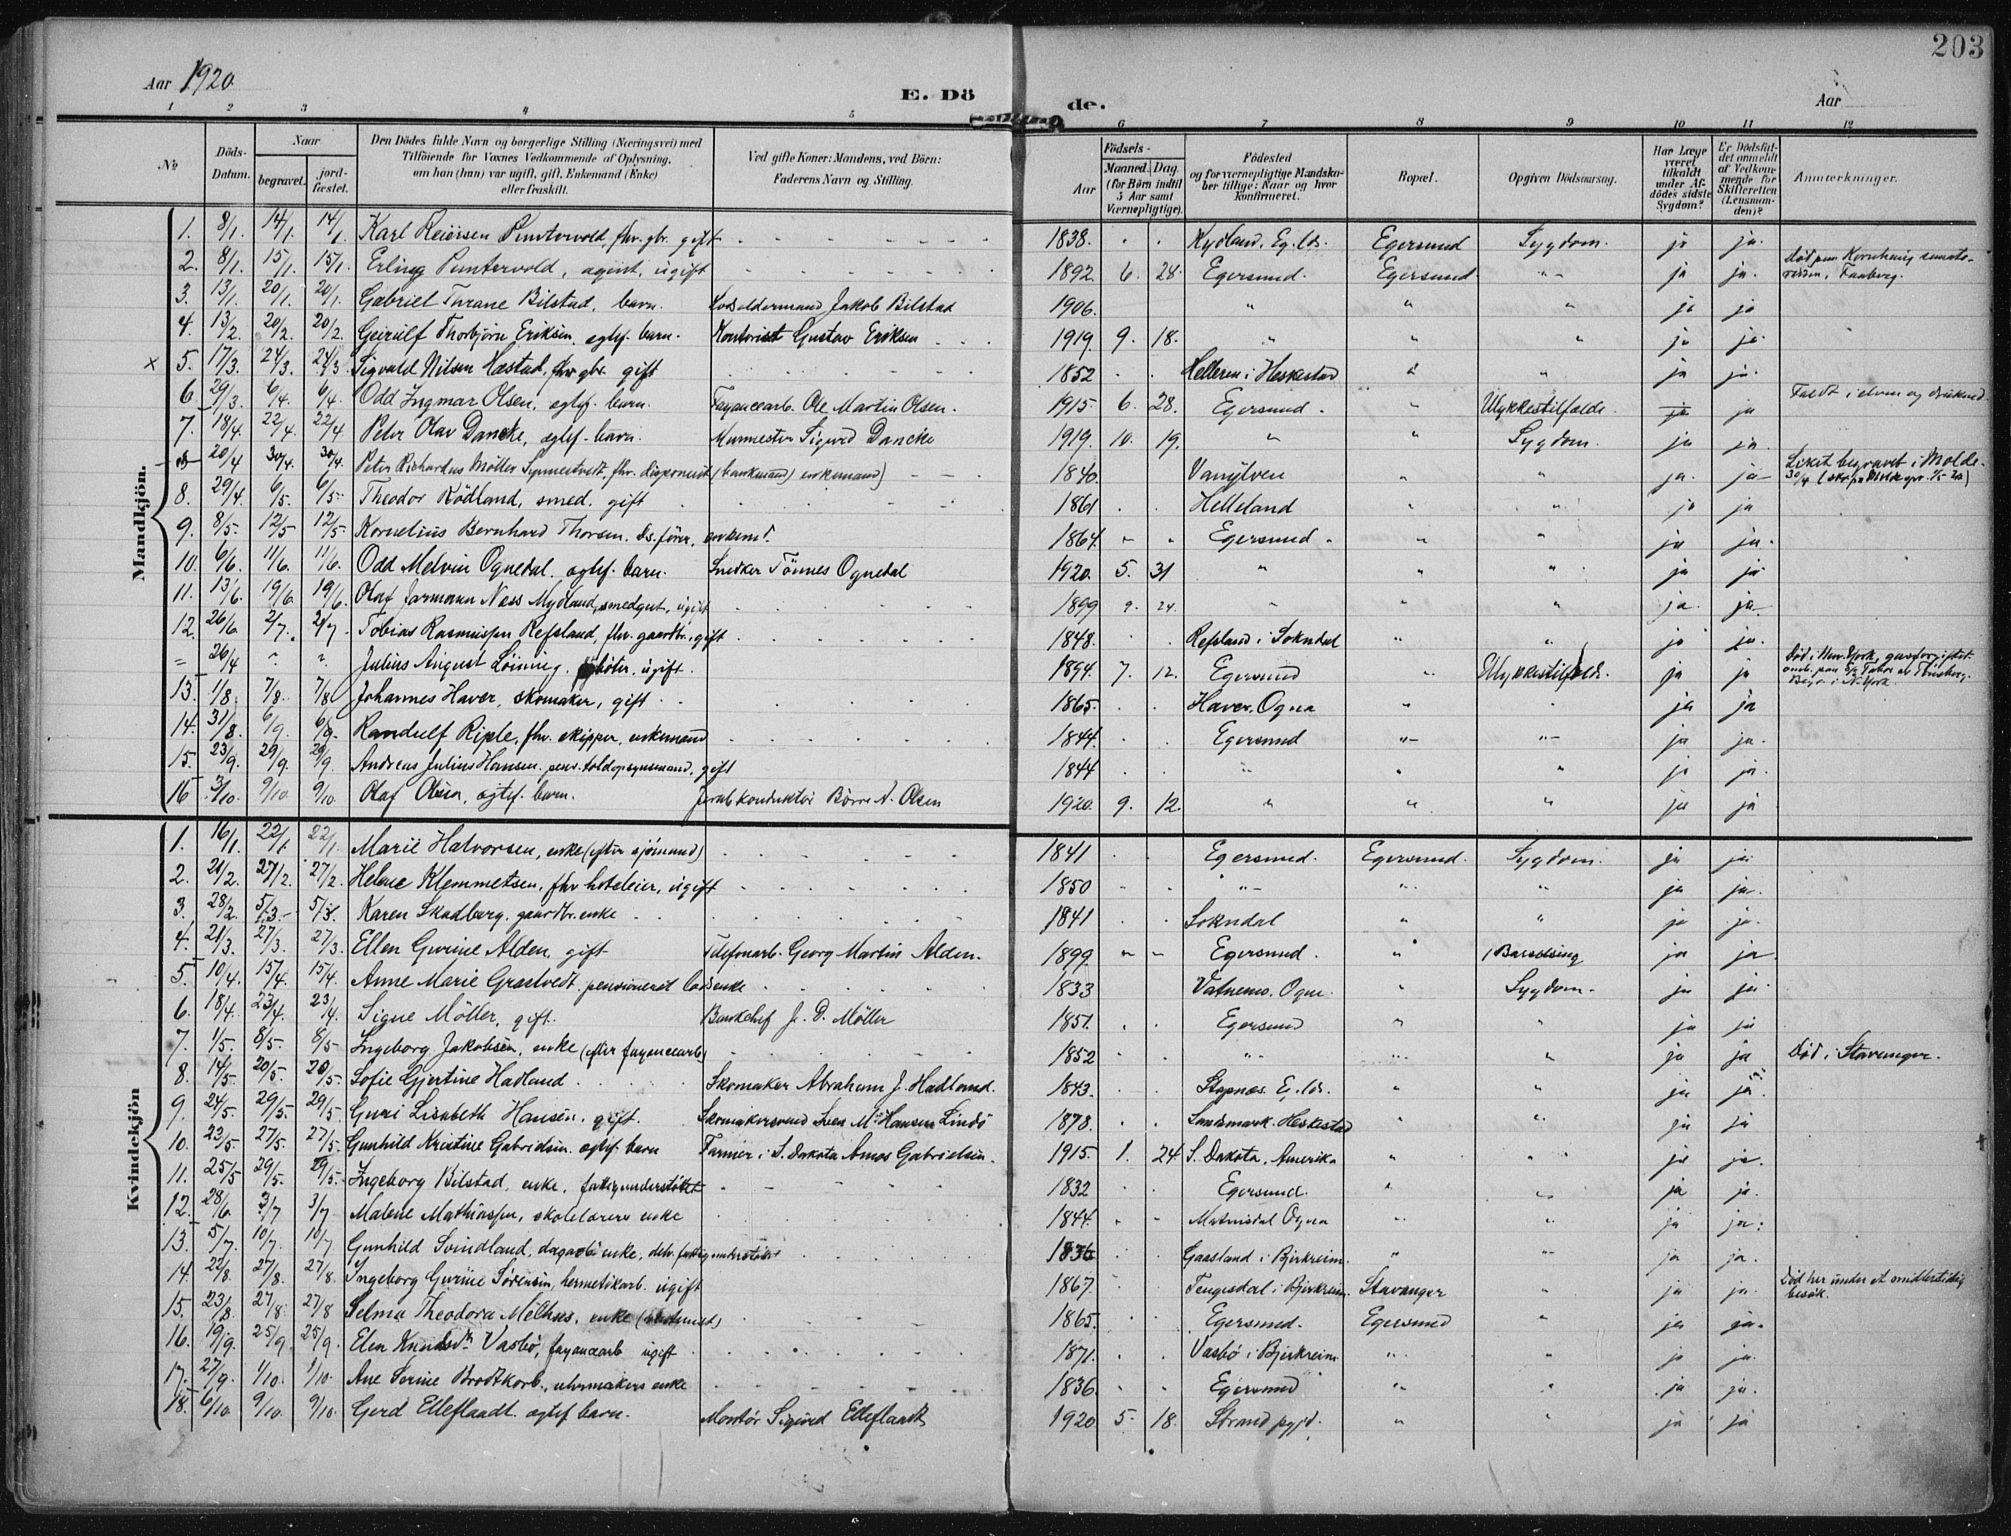 203
Aar 1920
E. Dö
de.
Aar
1 2 3 4 5 6 7 8 9 10 11 12
No
Döds-Datum.
Naar
begravet.
jord-fæstet.
Den Dödes fulde Navn og borgerlige Stilling (Næringsvei) med Tilföiende for Voxnes Vedkommende af Oplysning, om han (hun) var ugift, gift, Enkemand (Enke) eller fraskilt.
Ved gifte Koner: Mandens, ved Börn: Faderens Navn og Stilling.
Födsels-
Aar
Maaned. Dag.
(for Börn indtil 5 Aar samt Værnepligtige).
Födested og for værnepligtige Mandskaber tillige: Naar og hvor konfirmeret.
Bopæl.
Opgiven Dödsaarsag.
Har Læge været tilkaldt under Afdödes sidste Sygdom?
Er Dödsfaldet anmeldt af Vedkommende for Skifteretten (Lensmanden)?
Anmærkninger.
Mandkjön.
1. 8/1. 14/1. 14/1 Karl Reiersen Puntervold, fhv. gbr. gift 1838. Kydland, Eg. lds. Egersund Sygdom. ja ja.
2. 8/1. 15/1. 15/1. Erling Puntervold, agent, ugift 1892. 6. 28. Egersund. Egersund " ja ja. Död paa Kornhaug sanatorium, Faaberg.
3. 13/1. 20/1. 20/1. Gabriel Turane Bilstad, barn. Lodsoldermand Jakob Bilstad 1906. " " " ja ja
4. 13/2. 20/2. 20/2. Geirulf Thorbjörn Eriksen, egtef. barn. Kontorist Gustav Eriksen 1919 9. 18. " " " ja ja.
x 5. 17/3. 24/3. 24/3. Sigvald Nilsen Hæstad, fhv. gbr. gift 1852 Helleren i Heskestad " " ja ja.
6. 29/3. 6/4. 6/4. Odd Ingmar Olsen, egtef. barn. Fayancearb. Ole Martin Olsen. 1915. 6. 28. Egersund. " Ulykkestilfælde. ja ja Faldt i elven og druknet.
7. 18/4. 22/4. 22/4 Peter Olav Dancke, egtef. barn. Murmester Sigurd Dancke 1919. 10. 19. " " Sygdom. ja ja.
8 20/4 30/4. 30/4. Peter Richardus Möller, fhv. disponent (bankmand) enkemand) 1840. Vanylven " " ja. ja Liket begravet i Molde 30/4
8. 29/4 6/5. 6/5 Theodor Rödland, smed, gift 1861 Helleland " " ja ja
9. 8/5. 12/5 12/5 Kornelius Bernhard Thorsen, Ds. förer, enkem. 1864. Egersund " " ja ja.
10. 6/6. 11/6. 11/6. Odd Melvin Ognedal, egtef. barn. Snedker Tönnes Ognedal 1920. 5. 31 " " " ja ja
11. 13/6. 19/6. 19/6. Olaf Jarmann Næss Mydland, smedgut, ugift 1899 9. 24. " " " ja. ja.
12. 26/6. 2/7. 2/7. Tobias Rasmussen Refsland, fhv. gaardbr., gift 1848. Refsland i Sokndal " " ja ja.
= 26/4 ? ? Julius August Löining, ugift. 1894. 7. 12. Egersund " Ulykkestilfælde. ja ja Död i New York, gasforgiftet
13. 1/8. 7/8. 7/8 Johannes Haver, skomaker, gift 1865. Haver, Ogna " " ja ja
14. 31/8. 6/9. 6/9. Randulf Riple, fhv. skipper, enkemand 1844. Egersund " " ja ja.
15. 23/9. 29/9. 29/9. Andreas Julius Hansen, pens. toldopsynsmand, gift 1844 " " " ja ja.
16 3/10. 9/10. 9/10. Olaf Olsen, egtef. barn. Jernb. konduktör Börre A. Olsen 1920. 9. 12. " " " ja ja
Kvindekjön
1. 16/1. 22/1. 22/1. Marie Halvorsen, enke (efter sjömand) 1841 Egersund. Egersund. Sygdom. ja ja.
2. 20/2. 27/2. 27/2. Helene Klemmetsen, fhv. hoteleier, ugift 1850 " " " ja ja.
3. 28/2. 5/3. 5/3. Karen Skadberg, gaardbr. enke 1841 Sokndal " " ja ja.
4. 21/3. 27/3. 27/3. Ellen Gurine Alden, gift Telefonarb. Georg Martin Alden. 1899 Egersund. " i Barselseng ja ja
5. 10/4. 15/4. 15/4. Anne Marie Grastvedt, pensioneret lodsenke 1833 Vatnemo, Ogna. " Sygdom. ja ja.
6. 18/4. 23/4. 23/4. Signe Möller, gift. Bankchef J. D. Möller 1851. Egersund " " ja ja
7. 1/5. 8/5. 8/5 Ingeborg Jakobsen, enke (efter fayancearb.) 1852 " " " ja ja Död i Stavanger.
8. 14/5. 20/5. 20/5. Sofie Gjertine Hadland Skomaker Abraham J. Hadland. 1843. Stapnes, Eg. lds. " " ja ja
9. 24/5. 29/5. 29/5. Guri Lisabeth Hansen, gift. Skomakersvend Sven M. Hansen Lindö 1878. Landsmark, Heskestad " " ja ja
10. 23/5 27/5. 27/5 Gunhild Kristine Gabrielsen, egtef. barn Farmer i S. Dakota Amos Gabrielsen. 1915. 1. 24. S. Dakota, Amerika " " ja ja.
11. 25/5 29/5. 29/5. Ingeborg Bilstad, enke, fattigunderstöttet 1832 Egersund. " " ja ja.
12. 28/6. 3/7 3/7. Malene Mathiassen, skolelærers enke 1844. Matnisdal Ogna " " ja ja.
13. 5/7. 10/7. 10/7 Gunhild Svindland, dagarb. enke, delv. fattigunderstöttet 1836 Gaasland i Bjerkreim. " " ja ja.
14. 22/8. 27/8. 27/8. Ingeborg Gurine Sörensen, hermetikarb. ugift 1867. Tengesdal i Bjerkreim Stavanger " ja ja. Död her under et midlertidig besök.
15. 23/8 27/8. 27/8 Selma Theodora Melhus, enke 1865. Egersund. Egersund " ja ja.
16. 19/9. 25/9. 25/9. Elen Knudsdtr. Vasbö, fayancearb. ugift 1871. Vasbö i Bjerkreim " " ja ja.
17. 27/9. 1/10. 1/10. Ane Serine Brodtkorb, urmakers enke 1836. Egersund " " ja ja.
18. 6/10 9/10. 9/10. Gerd Elleflaadt, egtef. barn. Montör Sigurd Elleflaadt 1920 5. 18. Strand pgjd. " " ja ja